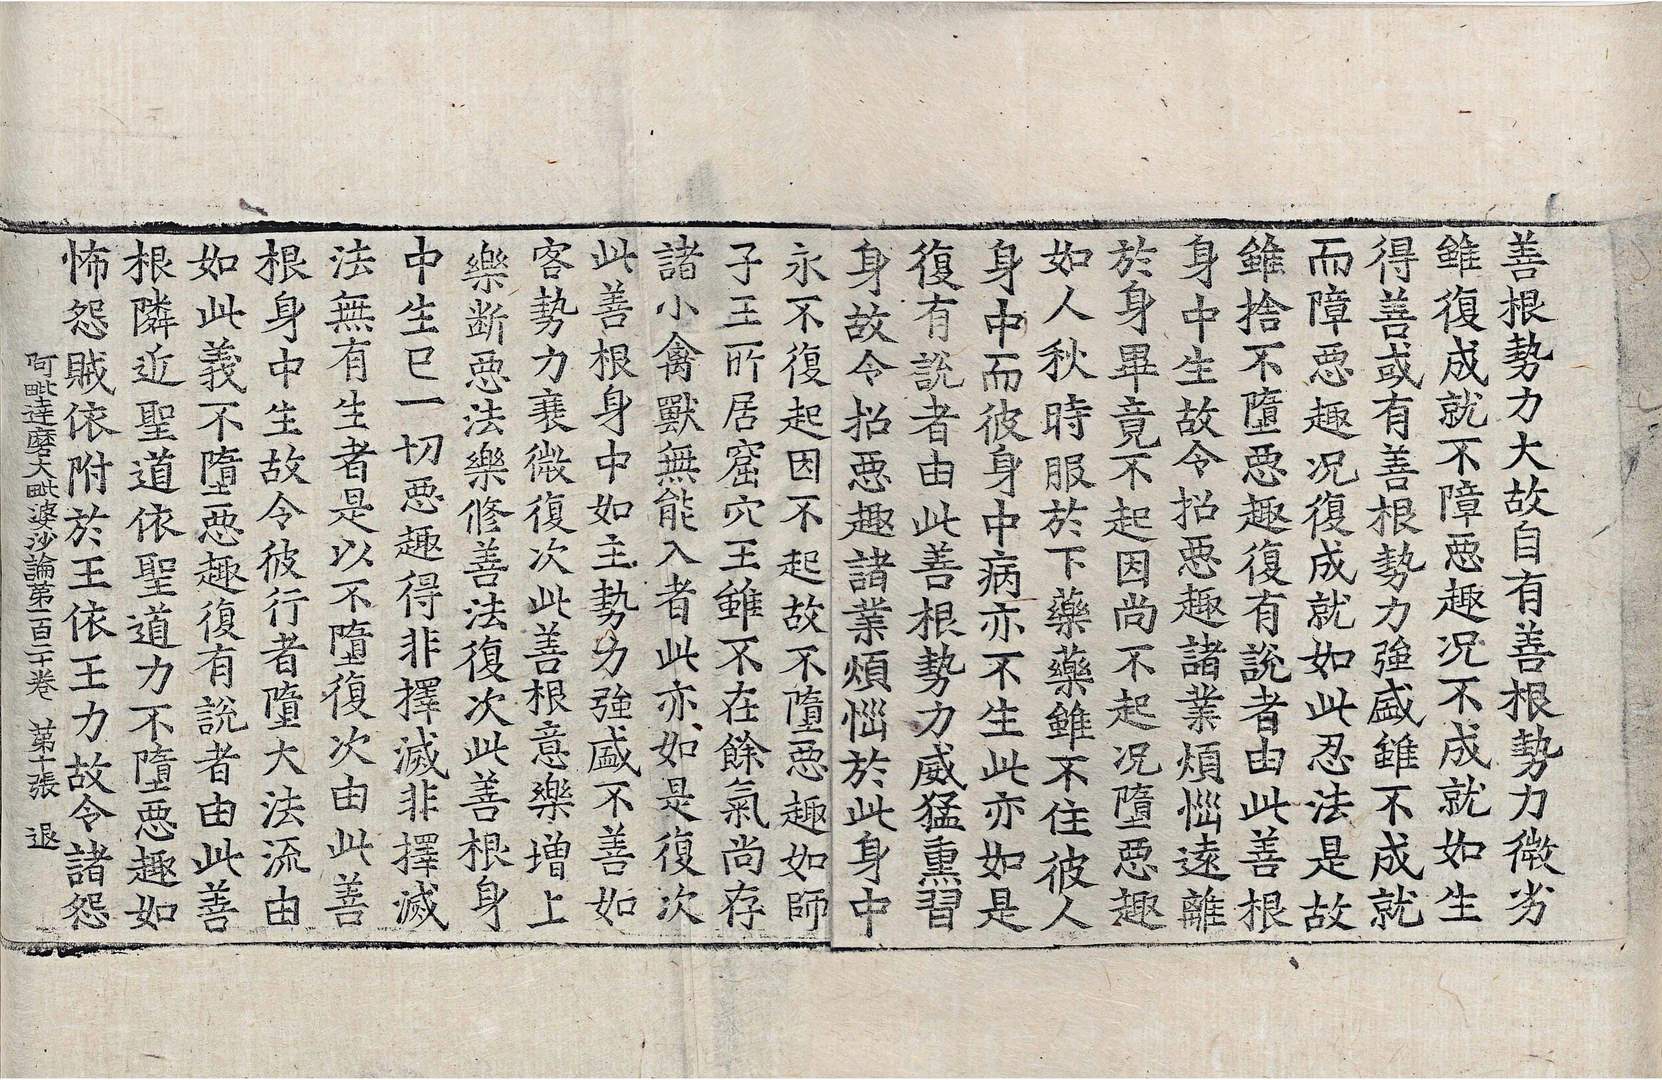 善根勢力大故自有善根勢力微劣
雖復成就不障惡趣况不成就如生
得善或有善根勢力強盛雖不成就
而障惡趣况復成就如此忍法是故
雖捨不墮惡趣復有說者由此善根
身中生故令招惡趣諸業煩惱遠離
於身畢竟不起因尚不起况墮惡趣
如人秋時服於下藥藥雖不住彼人
身中而彼身中病亦不生此亦如是
復有說者由此善根勢力威猛熏習
身故令招惡趣諸業煩惱於此身中
永不復起因不起故不墮惡趣如師
子王所居窟穴王雖不在餘氣尚存
諸小禽獸無能入者此亦如是復次
此善根身中如主勢力強盛不善如
客勢力衰微復次此善根意樂增上
樂斷惡法樂修善法復次此善根身
中生已一切惡趣得非擇滅非擇滅
法無有生者是以不墮復次由此善
根身中生故令彼行者墮大法流由
如此義不墮惡趣復有說者由此善
根隣近聖道依聖道力不墮惡趣如
怖怨賊依附於王依王力故令諸怨
阿毗達磨大毗婆沙論第一百二十卷 第十張 退